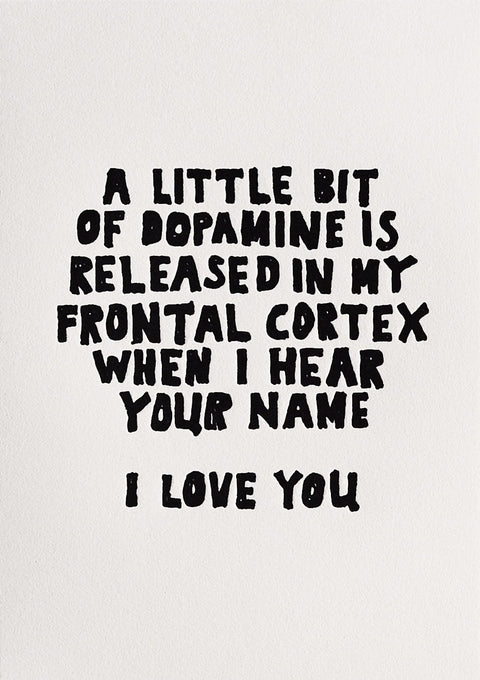 A LITTLE BIT
OF DOPAMINE IS
RELEASED IN MY
FRONTAL CORTEX
WHEN I HEAR
YOUR NAME
I LOVE YOU